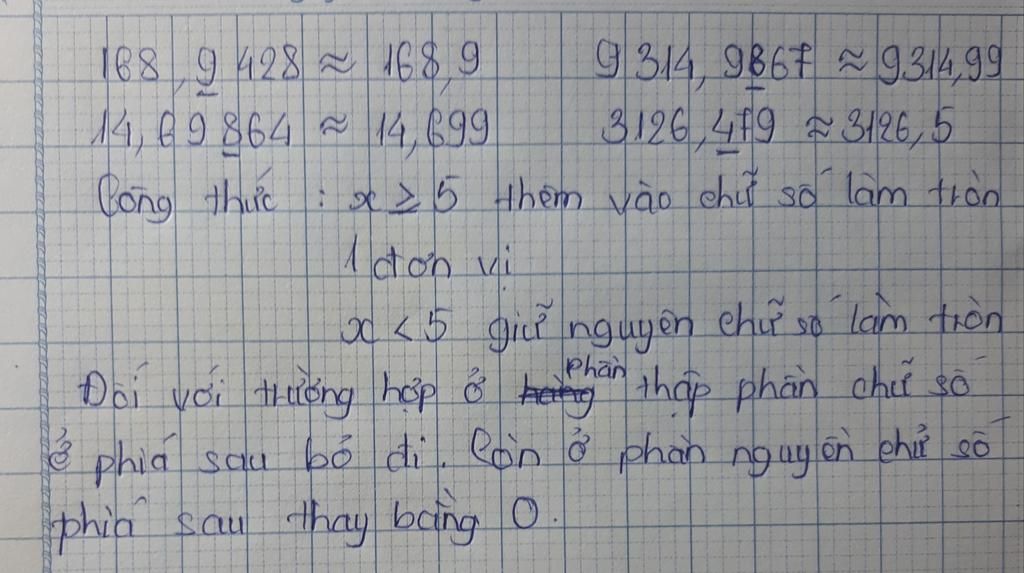 168,9428 ≈ 168,9 9314,9867 ≈ 9314,99
14,69864 ≈ 14,699 3126,479 ≈ 3126,5
Công thức : x ≥ 5 thêm vào chữ số làm tròn
1 đơn vị
x < 5 giữ nguyên chữ số làm tròn
Đối với trường hợp ở phần thập phân chữ số
ở phía sau bỏ đi. Còn ở phần nguyên chữ số
phía sau thay bằng 0.